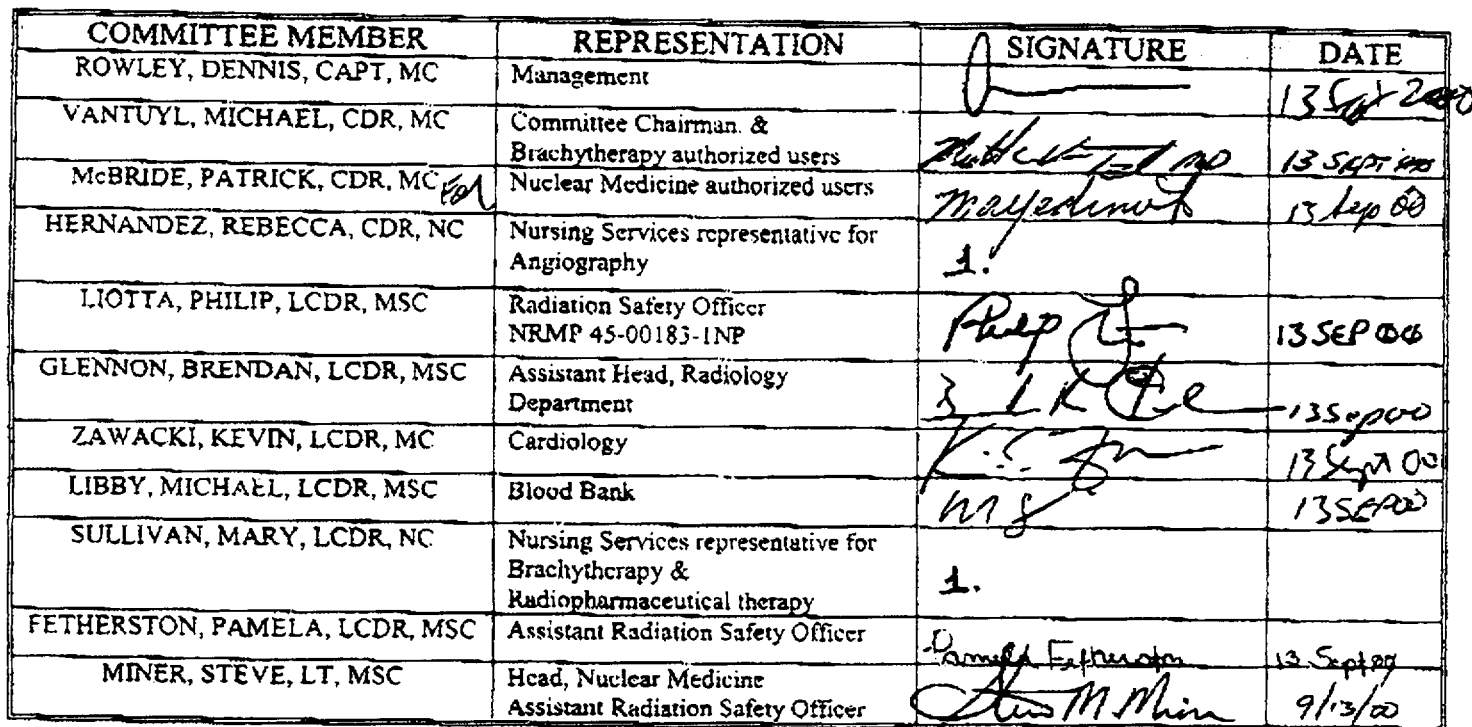 COMMITTEE MEMBER REPRESENTATION SIGNATURE DATE
ROWLEY, DENNIS, CAPT, MC Management 13 Sept 2000
VANTUYL, MICHAEL, CDR, MC Committee Chairman. &
Brachytherapy authorized users 13 SEPT
McBRIDE, PATRICK, CDR, MC For Nuclear Medicine authorized users 13 Sep 00
HERNANDEZ, REBECCA, CDR, NC Nursing Services representative for
Angiography 1.
LIOTTA, PHILIP, LCDR, MSC Radiation Safety Officer
NRMP 45-00183-1NP Philip 13 SEP 00
GLENNON, BRENDAN, LCDR, MSC Assistant Head, Radiology
Department 13 Sep 00
ZAWACKI, KEVIN, LCDR, MC Cardiology 13 Sept 00
LIBBY, MICHAEL, LCDR, MSC Blood Bank 13 SEP 00
SULLIVAN, MARY, LCDR, NC Nursing Services representative for
Brachytherapy &
Radiopharmaceutical therapy 1.
FETHERSTON, PAMELA, LCDR, MSC Assistant Radiation Safety Officer Pamela Fetherston 13 Sept 00
MINER, STEVE, LT, MSC Head, Nuclear Medicine
Assistant Radiation Safety Officer Steve M. Miner 9/13/00